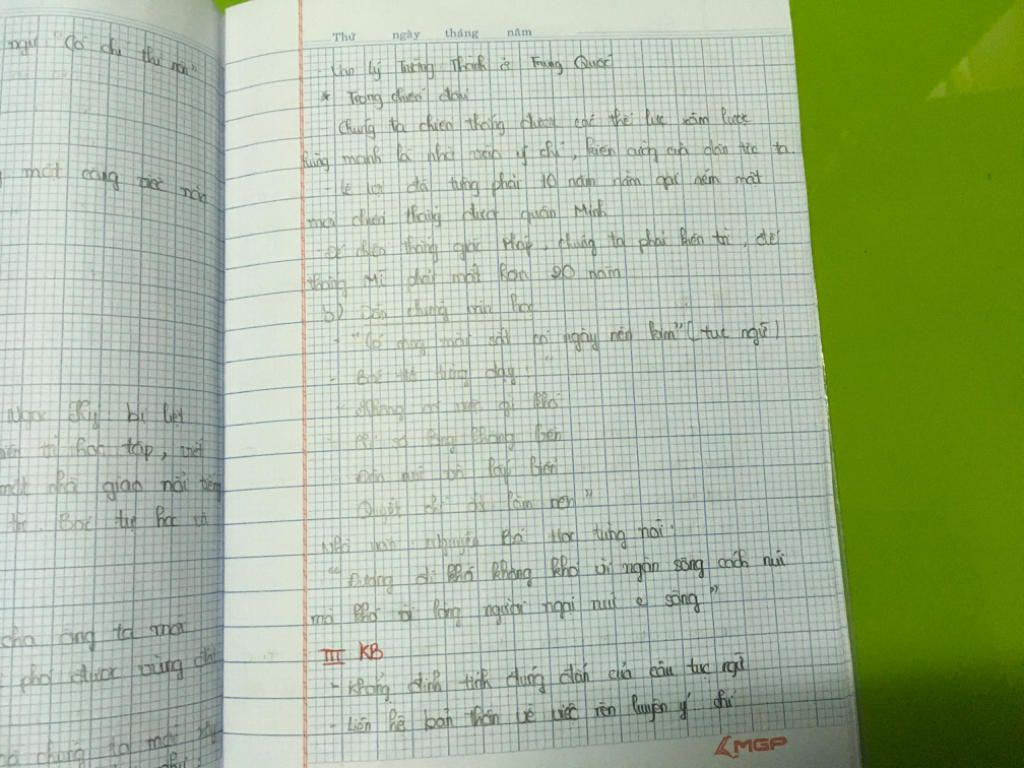 ngữ "Có chí thì nên"
một công việc nào
Ngọc Ký bị liệt
trì học tập, viết
một nhà giáo nổi tiếng
Bác tự học
cha ông ta mới
phó được vùng đất
chúng ta mới
Thứ ngày tháng năm
lý Tường Thành ở Trung Quốc
* Trong chiến đấu
Chúng ta chiến thắng được các thế lực xâm lược
hùng mạnh là nhờ ý chí, kiên cường của dân tộc ta
- Lê Lợi đã từng phải 10 năm nằm gai nếm mật
mới chiến thắng được quân Minh
- Để chiến thắng giặc Pháp, chúng ta phải kiên trì, để
thắng Mĩ phải mất hơn 20 năm
b) Dẫn chứng văn học
- "Có công mài sắt có ngày nên kim" (tục ngữ)
- Bác Hồ từng dạy: "
- Không có việc gì khó
- Chỉ sợ lòng không bền
Đào núi và lấp biển
Quyết chí ắt làm nên"
Nhà văn Nguyễn Bá Học từng nói:
"Đường đi khó không khó vì ngăn sông cách núi
mà khó vì lòng người ngại núi e sông"
III KB
- Khẳng định tính đúng đắn của câu tục ngữ
- Liên hệ bản thân về việc rèn luyện ý chí
MGP